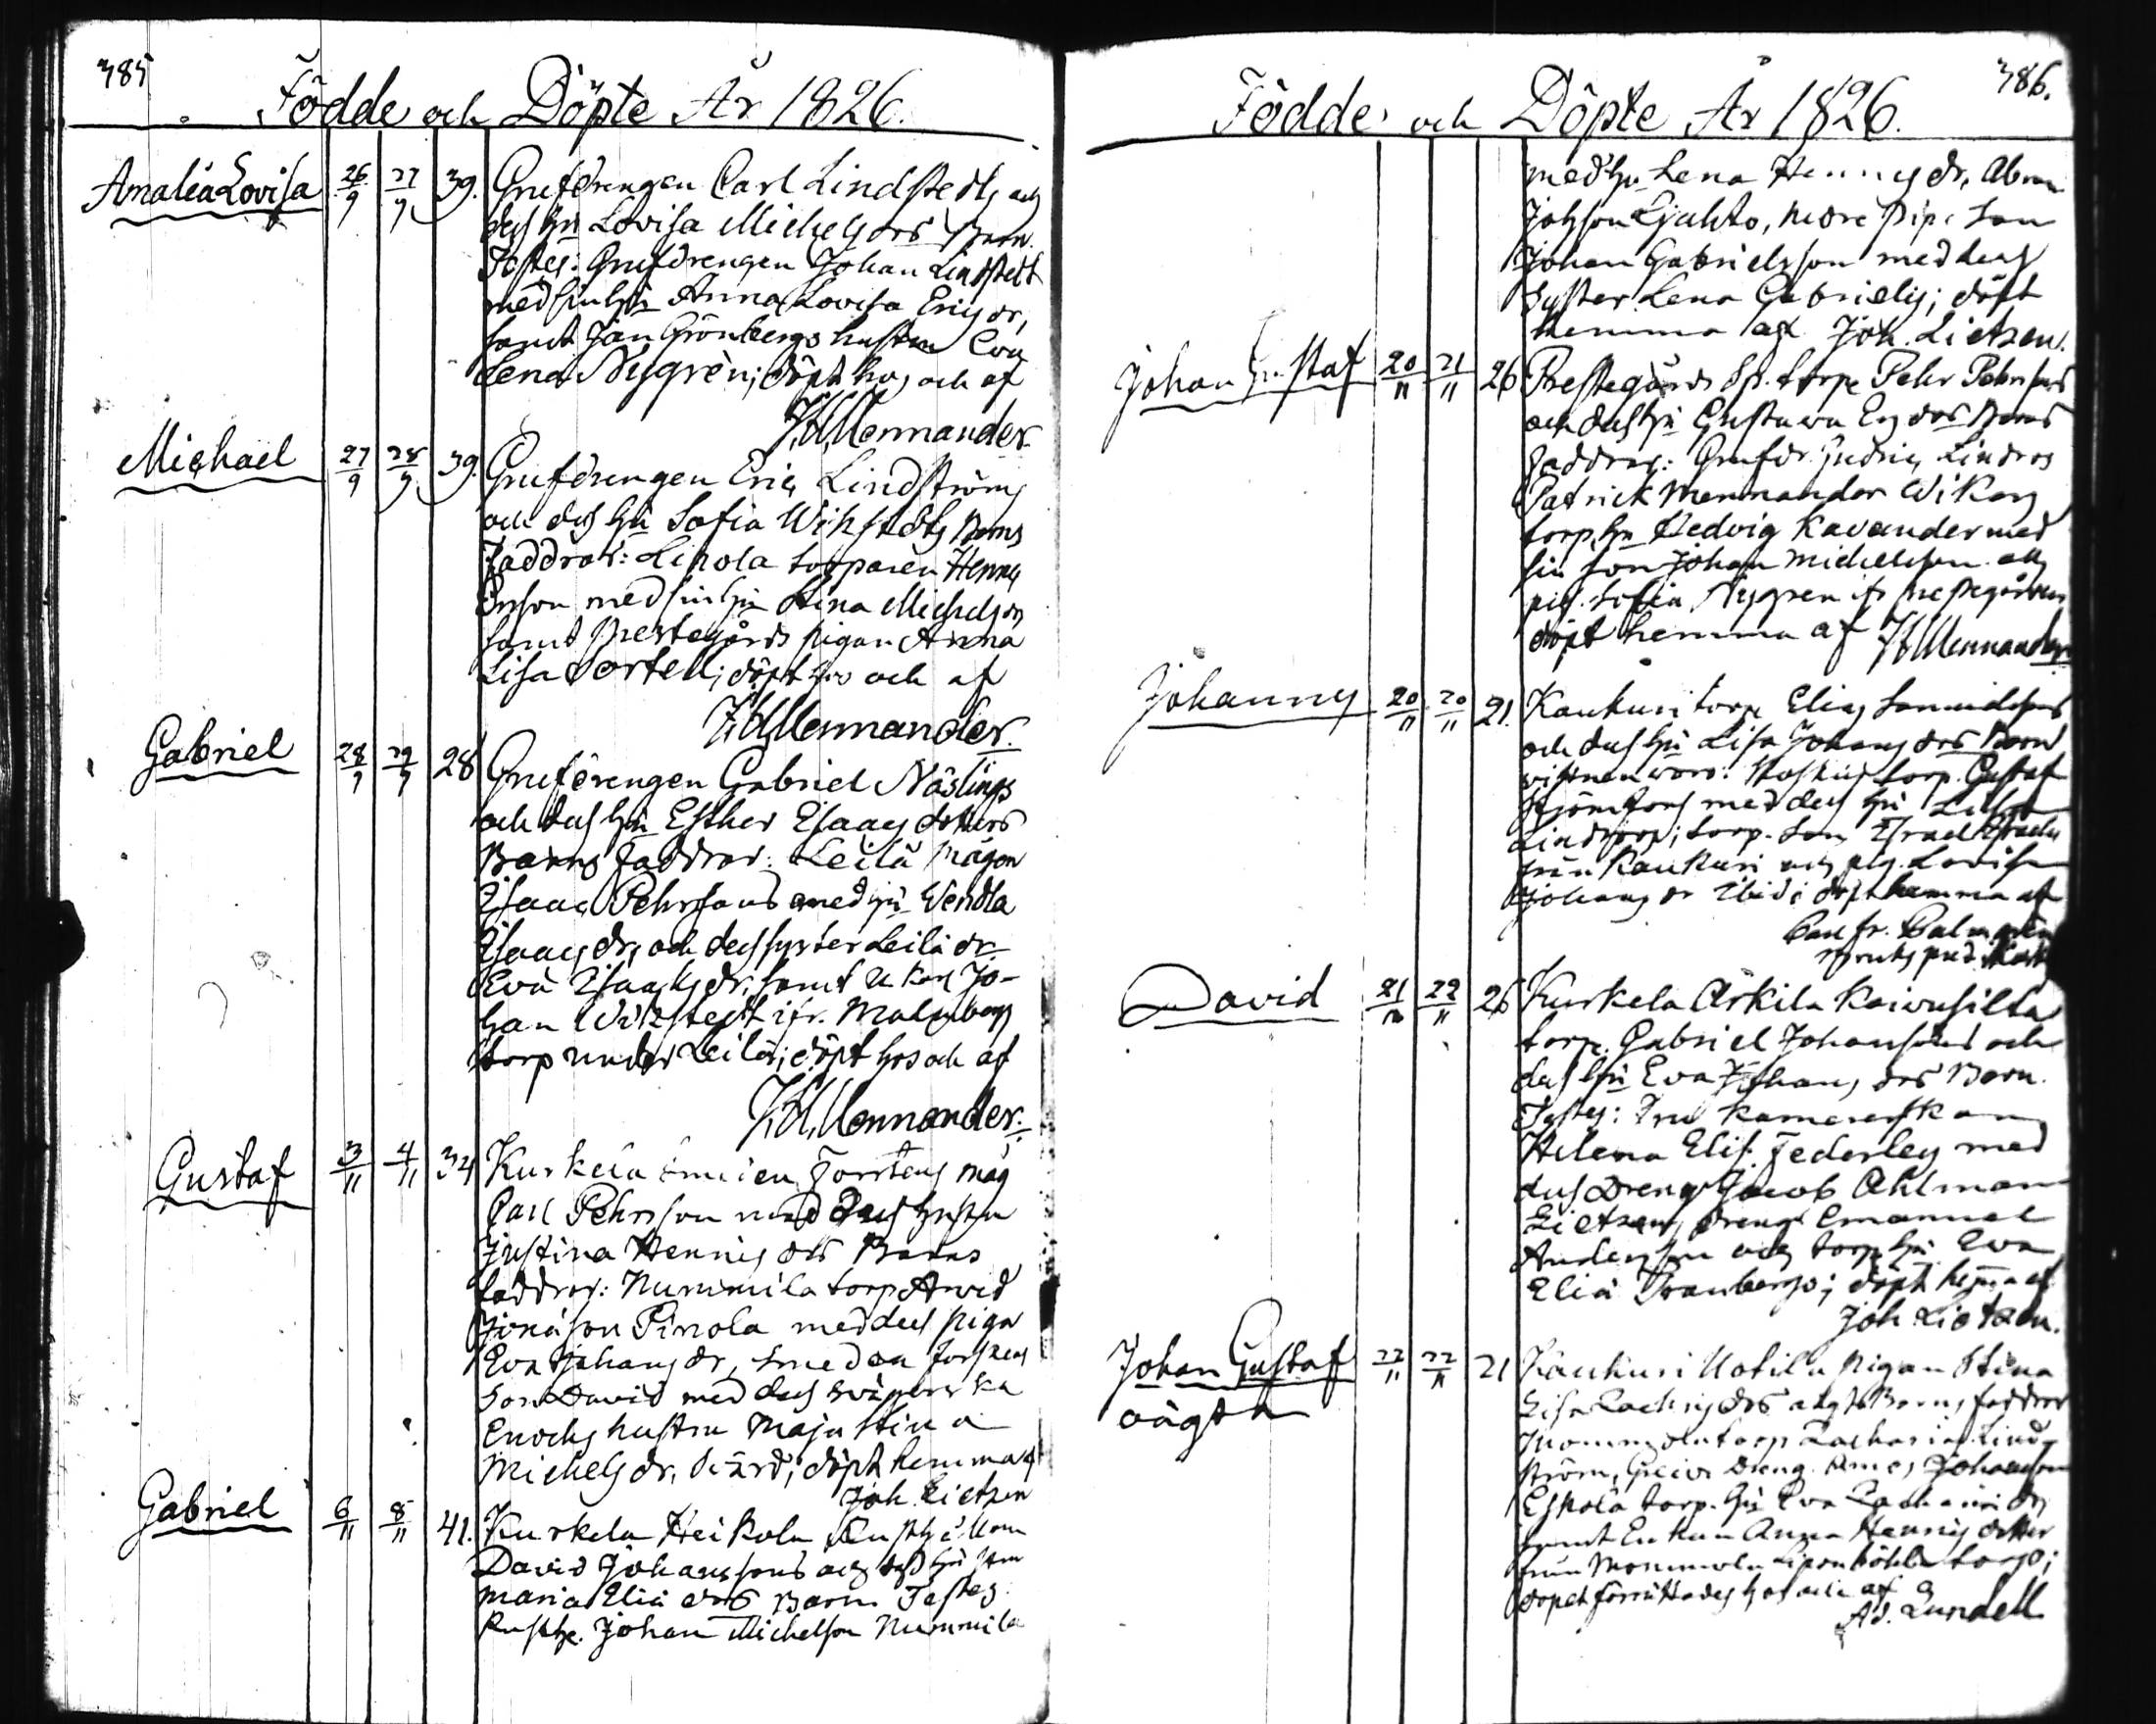 385
Födde och Döpte År 1826.
Amalia Lovisa 26/9 27/9 39. Grufdrengen Carl Lindstedts och
dess hu Lovisa Michelsdrs Barn.
Testes: Grufdrengen Johan Lindstedt
med sin hu Anna Lovisa Ericsdr,
samt Jan Grönbergs hustru Eva
Lena Nygrèn; döpt hos och af
J.H. Mennander.
Michael 27/9 28/9 39. Grufdrengen Eric Lindströms
och dess hu Sofia Wikstedts Barns
Faddrar: Lipola torparen Henric
Ersson med sin hu Stina Michelsdr
samt Prestegårds pigan Anna
Lisa Fortell; döpt hos och af
J.H. Mennander.
Gabriel 28/9 29/9 28 Grufdrengen Gabriel Näslings
och dess hu Esther Esaacs dotters
Barns Faddrar: Leilä mågen
Esaac Pehrssons med hu Wendla
Esaacsdr, och dess syster Leilä dr
Eva Esaacsdr, samt Jo-
han Wikstedt ifr. Malmbergs
torp under Leilä; döpt hos och af
J.H. Mennander.
Gustaf 3/11 4/11 34 Kurkela smeden Forstens måg
Carl Pehrsson med dess hustru
Justina Hennrics drs Barns
faddrar: Nummila torp Arvid
Jonasson Pirrola med dess piga
Eva Johansdr, smeden Forstens
Son David med dess svägerska
Enochs hustru Maja Stina
Michelsdr, döpt hemma af
Joh. Lietzen
Gabriel 6/11 8/11 41. Kurkela Heikola
David Johanssons och dess hu
Maria Eliæ drs Barn. Testes:
Rusth. Johan Michelsson Nummila
386.
Födde och Döpte År 1826.
med hu Lena Henricsdr, Abram
Johsson, Son
Johan Gabrielsson med dess
Syster Lena Gabrielis; döpt
hemma af Joh. Lietzen.
Johan Gustaf 20/11 21/11 26 Prestegårds torp Pehr Pehrssons
och dess hu Gustava Ersdrs Barns
Faddrar: Grufdr. Lindros
Patrick Mennander
torp. hu Hedvig Kavander med
sin son Johan Michelsson och
pig. Sofia Nygren ifr Prestegården
döpt hemma af J.H. Mennander
Johannes 20/11 20/11 21. Kaukuri torp Elias Samuelssons
och dess hu Lisa Johans drs Barn
vittnen woro: torp. Gustaf
med dess hu
torp. Son Israel
från Kaukuri och pig. Lovisa
Johans dr Ibid; döpt hemma af
Carl Fr. Palmgrèn
David 21/11 22/11 26 Kurkela Ärkilä Kaivusilta
torp. Gabriel Johanssons och
dess hu Eva Johans drs Barn.
Testes: Fru Kamererskan
Helena Elis. Federley med
dess Dreng Jacob Ahlman
Lietzens dreng Emanuel
Andersson och torp hu Eva
Eliæ Svanbergs; döpt hema af
Joh. Lietzen.
Johan Gustaf 22/11 22/11 21 Kaukuri Uotila Pigan Stina
oägta Lisa Zachrisdrs oägta Barns faddrar
torp Zacharias Lind-
ström, Dreng Johansson
Eskola torp. hu Eva
samt Enkan Anna Henrics dotter
från torp;
dopet förrättades hos och af
Ad. Lundell